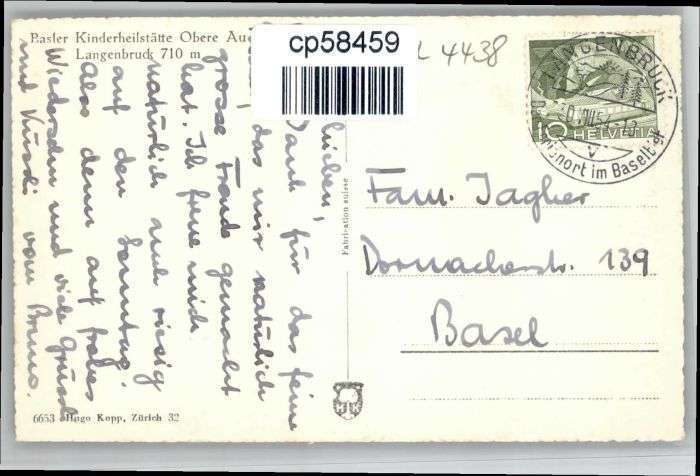 Basler Kinderheilstätte Obere Au
Langenbruck 710 m
cp58459
L 4438
LANGENBRUCK
HELVETIA
10
ort im Baselbiet
Lieben,
Dank, für das feine
das mir natürlich
grosse Freude gemacht
hat. Ich freue mich
natürlich auch riesig
auf den Sonntag.
Also denn auf frohes
Wiedersehn und viele Grüsse
und Küssli vom Bruno.
Fabrication suisse
Fam. Jagher
Dornacherstr. 139
Basel
6653 Hugo Kopp, Zürich 32